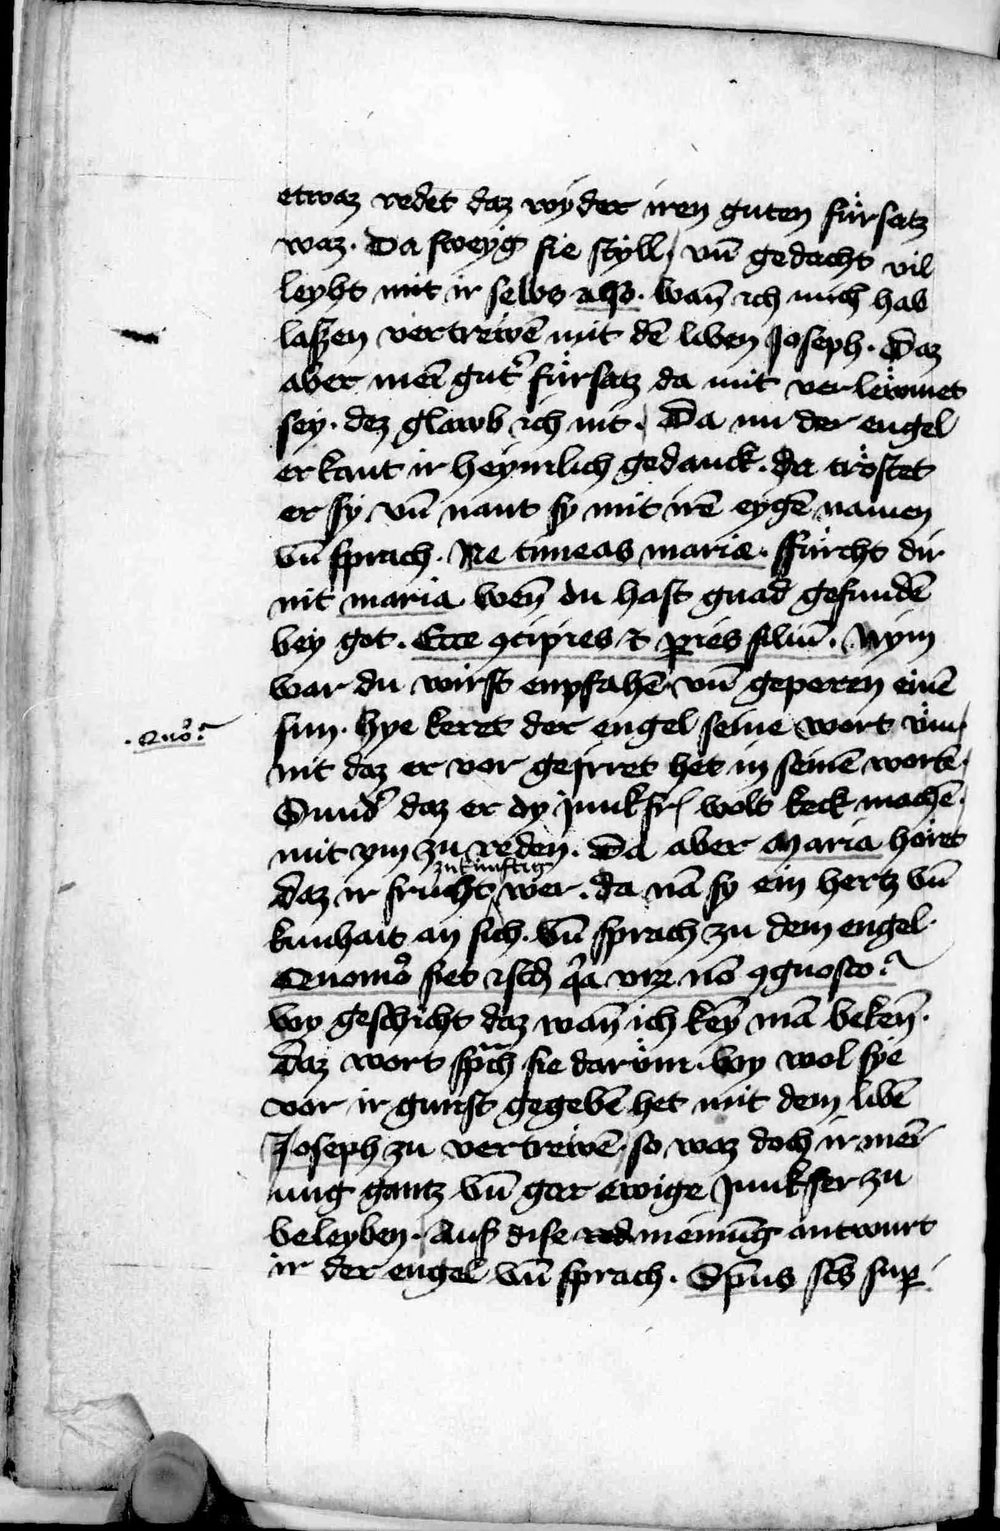 etwaz redet daz wyder iren guten fürsatz
waz. Da sweyg sie styll, vn̄ gedacht vil
leyht mit ir selbs also. wan̄ ich mich hab
laszen vertrewē mit dē liben Joseph. Daz
aber mei͂ gut̓ fürsatz da mit verlewmet
sey. dez glawb ich nit. Da nu der engel
erkant ir heymlich gedanck. da tröstet
er sy vn̄ nant sy mit irē eygē namen
vn̄ sprach. Ne timeas maria. ffürcht dir
nit maria wen̄ du hast gnad gefundē
bey got. Ecce ꝯcipies ⁊ ꝑies filiū. Nym
war du wirst enpfahē vn̄ geperen einē
sun. hye keret der engel seine wort vm̈
nit daz er vor geirret het in seinē wortē,
Sund̓ daz er dy junkfr̄ wolt keck machē.
mit ym zu reden. Da aber Maria höret
zukünftig
daz ir frucht wer. da nā sy ein hertz vn̄
kunhait an sich. vn̄ sprach zu dem engel.
Quomo͂ fiet istd̄ qͣa viꝝ nō ꝯgnosco.
wy geschicht daz wan̄ ich key̅ mā beken̄.
Daz wort sp̄ch sie darüm. wy wol sye
vor ir gunst gegebē het mit dem libē
Joseph zu vertrewē. so waz doch ir mei͂
nung gantz vn̄ gar ewige junkfer zu
beleyben. Auß dise red meinūg antwurt
ir der engel vn̄ sprach. Sp̄us sc̄s suꝑ
.Quo͂.